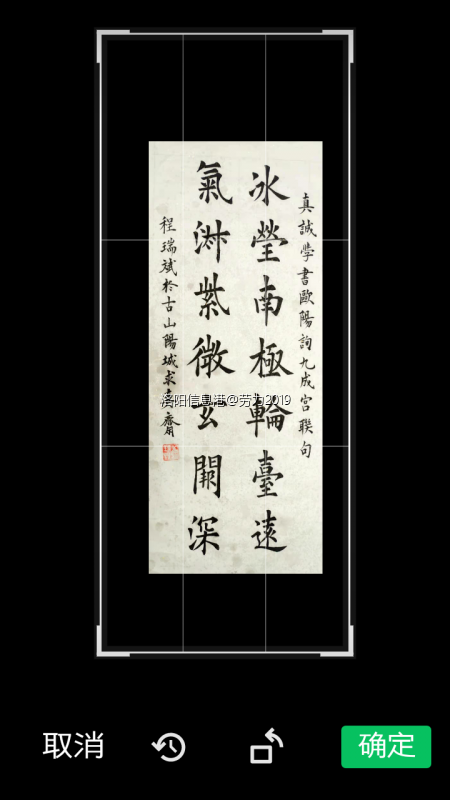 真誠学書歐陽詢九成宫聯句
冰瑩南極輪臺遠
氣紫微玄深
程瑞斌於古山陽城求齋
洛阳信息港@劳力2019
取消
确定